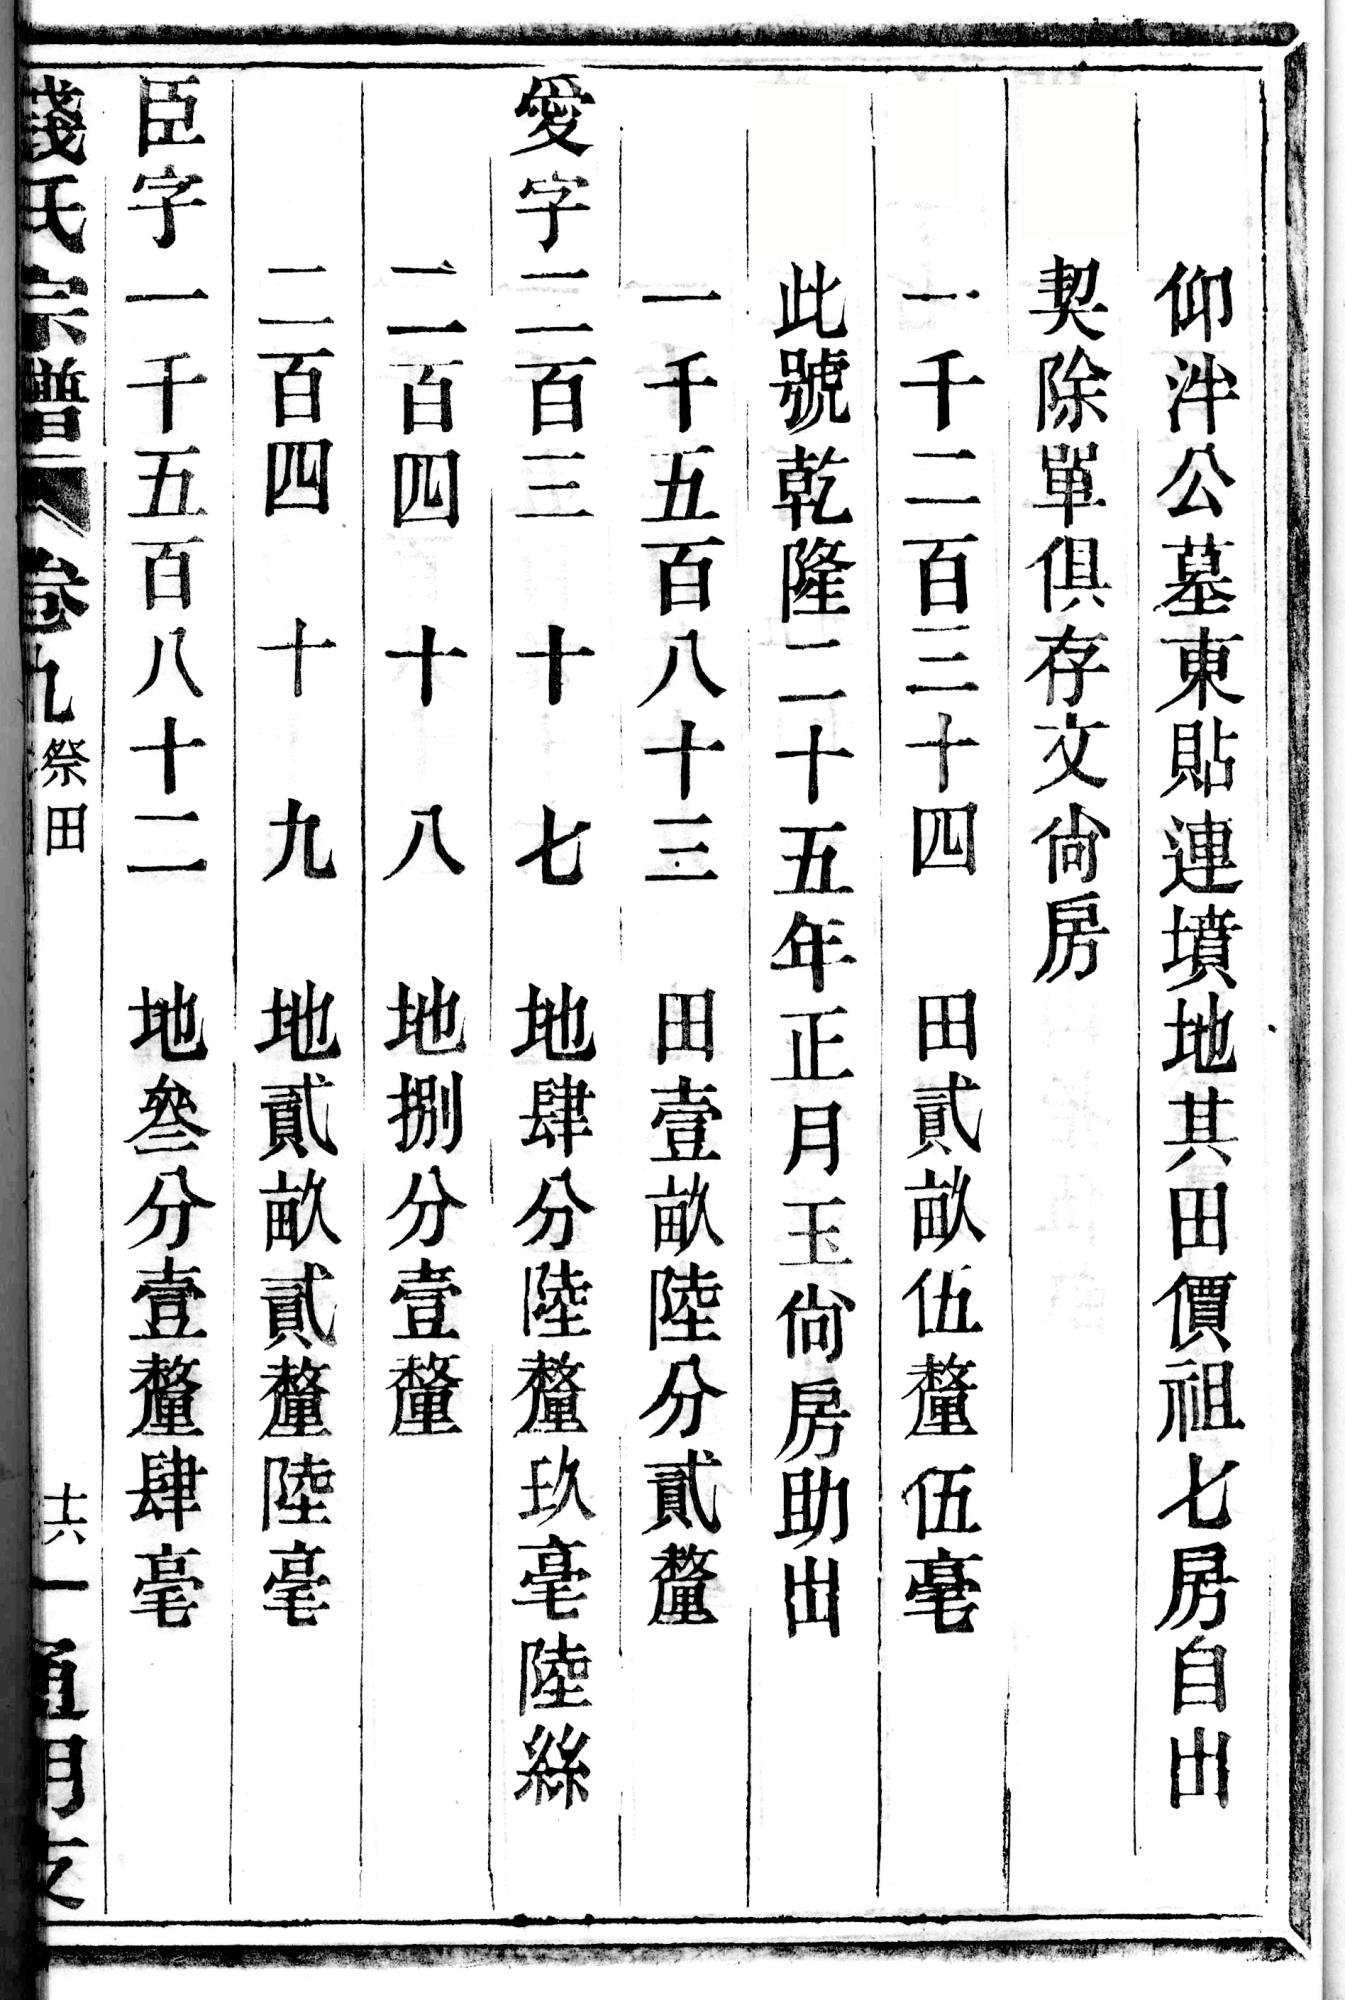 仰泮公墓東貼連墳地其田價祖七房自出
契除單俱存文尙房
一千二百三十四 田貳畝伍釐伍毫
此號乾隆二十五年正月玉尙房助出
一千五百八十三 田壹畝陸分貳釐
愛字二百三十七 地肆分陸釐玖毫陸絲
二百四十八 地捌分壹釐
二百四十九 地貳畝貳釐陸毫
臣字一千五百八十二 地叄分壹釐肆毫
錢氏宗譜 卷九 祭田 十六 通明支